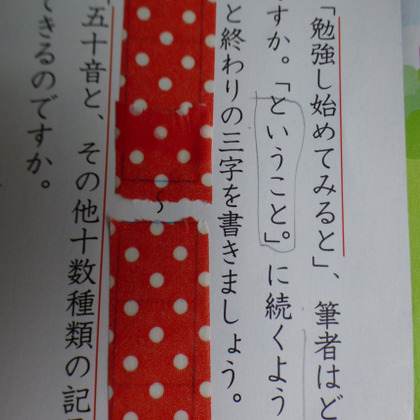 「勉強し始めてみると」、筆者はど
すか。「ということ。」に続くよう
と終わりの三字を書きましょう。
～
五十音と、その他十数種類の記
できるのですか。